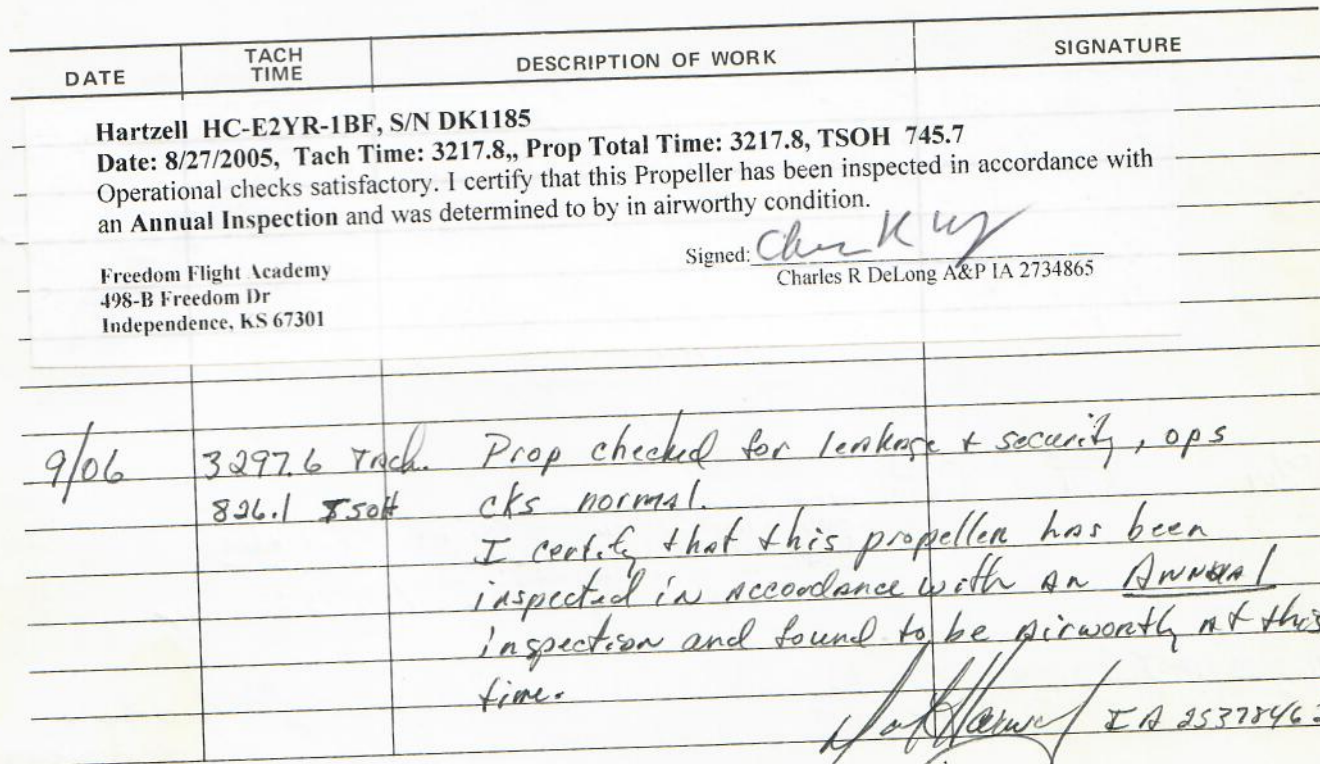 DATE TACH TIME DESCRIPTION OF WORK SIGNATURE
Hartzell HC-E2YR-1BF, S/N DK1185
Date: 8/27/2005, Tach Time: 3217.8,, Prop Total Time: 3217.8, TSOH 745.7
Operational checks satisfactory. I certify that this Propeller has been inspected in accordance with
an Annual Inspection and was determined to by in airworthy condition.
Signed:
Charles R DeLong A&P IA 2734865
Freedom Flight Academy
498-B Freedom Dr
Independence, KS 67301
9/06 3297.6 Tach. Prop checked for leakage & security, ops
826.1 TSOH cks normal.
I certify that this propeller has been
inspected in accordance with an Annual
inspection and found to be airworthy at this
time.
IA 25378463